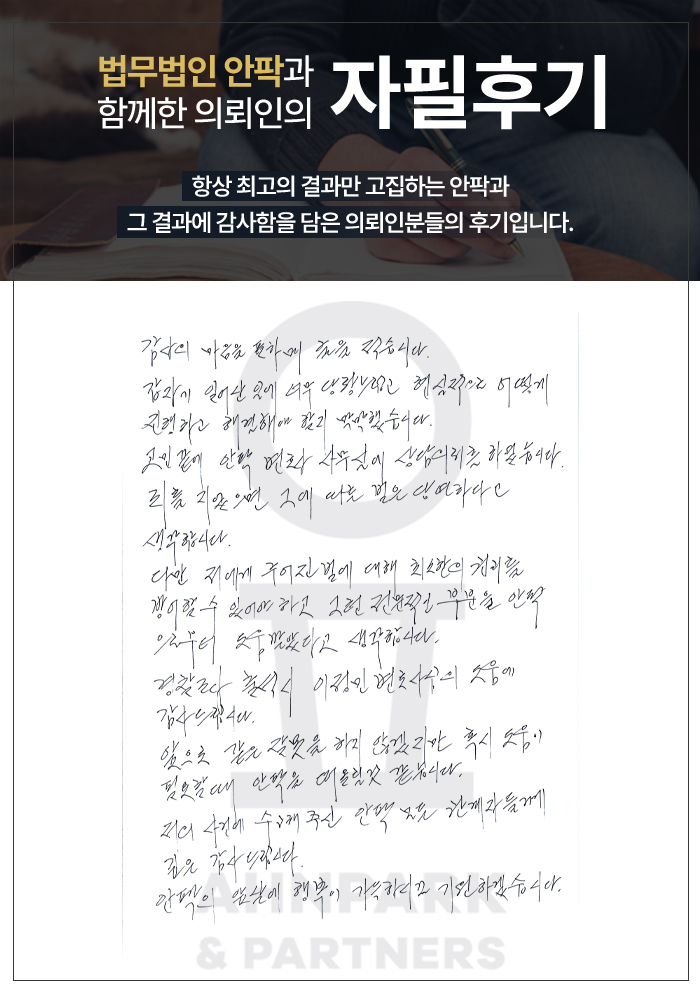 법무법인 안팍과
함께한 의뢰인의
자필후기
항상 최고의 결과만 고집하는 안팍과
그 결과에 감사함을 담은 의뢰인분들의 후기입니다.
감사의 마음을 표하며 글을 적습니다.
갑자기 일어난 일에 너무 당황스럽고 현실적으로 어떻게
진행하고 해결해야 할지 막막했습니다.
고민끝에 안팍 변호사 사무실에 상담의뢰를 하였습니다.
죄를 지었으면 그에 따른 벌은 당연하다고
생각합니다.
다만 저에게 주어진 벌에 대해 최소한의 권리를
행사할 수 있어야 하고 그런 전문적인 부분을 안팍
으로부터 도움받았다고 생각합니다.
경찰조사 출석시 이정민 변호사님의 도움에
감사드립니다.
앞으로 같은 잘못을 하지 않겠지만 혹시 도움이
필요할때 안팍을 떠올릴것 같습니다.
저의 사건에 수고해주신 안팍 모든 관계자들에게
깊은 감사드립니다.
안팍의 앞날에 행복이 가득하시고 기원하겠습니다.
AHNPARK
& PARTNERS